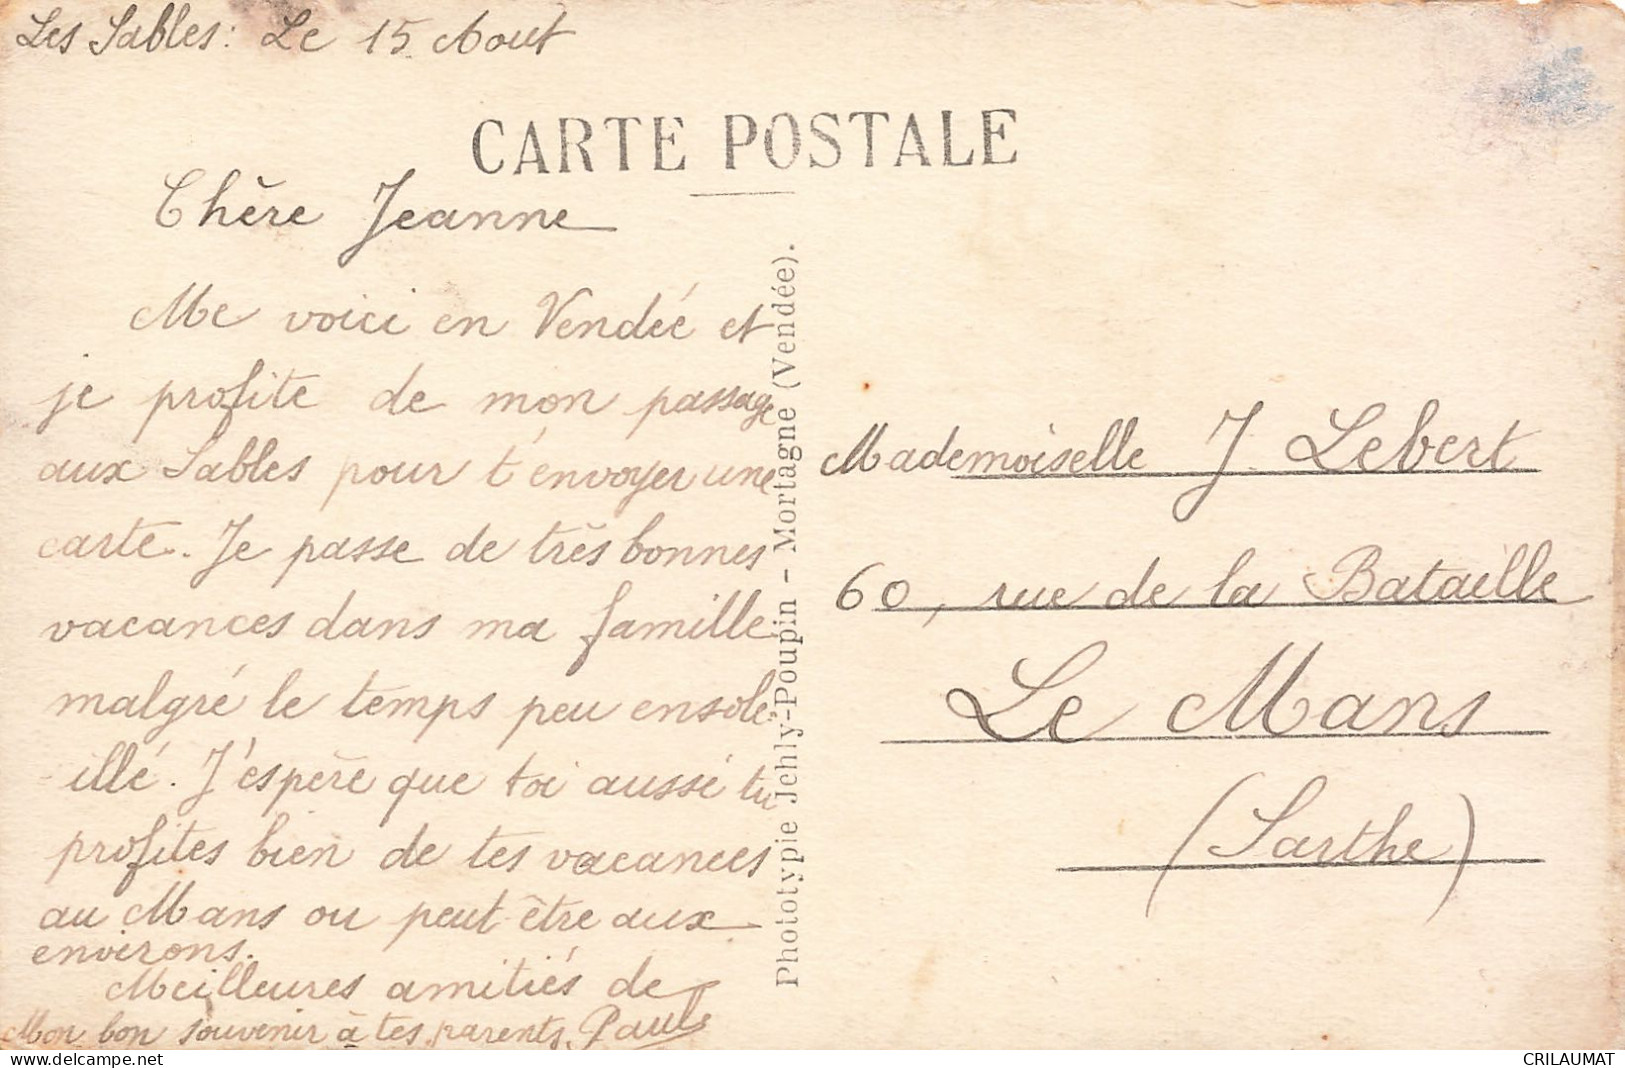 Les Sables: Le 15 Aout
CARTE POSTALE
Chère Jeanne
Me voici en Vendée et
je profite de mon passage
aux Sables pour t'envoyer une
carte. Je passe de très bonnes
vacances dans ma famille
malgré le temps peu ensole-
illé. J'espère que toi aussi tu
profites bien de tes vacances
au Mans ou peut-être aux
environs.
Meilleures amitiés de
Paule
Mon bon souvenir à tes parents.
Phototypie Jehly-Poupin - Mortagne (Vendée).
Mademoiselle J. Lebert
60, rue de la Bataille
Le Mans
(Sarthe)
delcampe.net
CRILAUMAT